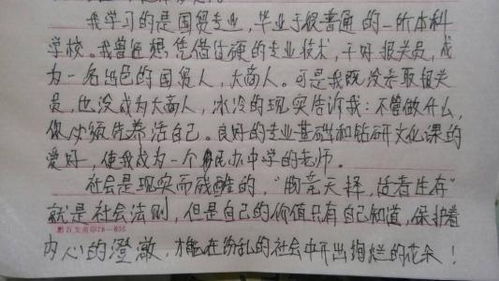 我学习的是国贸专业，毕业于很普通的一所本科
学校。我曾通想凭借过硬的专业技术，干好报关员，成
为一名出色的国贸人，大商人。可是我既没考取报关
员，也没成为大商人，冰冷的现实告诉我：不管做什么，
你必须先养活自己。良好的专业基础和钻研文化课的
爱好，使我成为一个民办中学的老师。
社会是现实而残酷的，“物竞天择，适者生存”
就是社会法则，但是自己的价值只有自己知道，保护着
内心的澄澈，才能在纷乱的社会中开出绚烂的花朵！